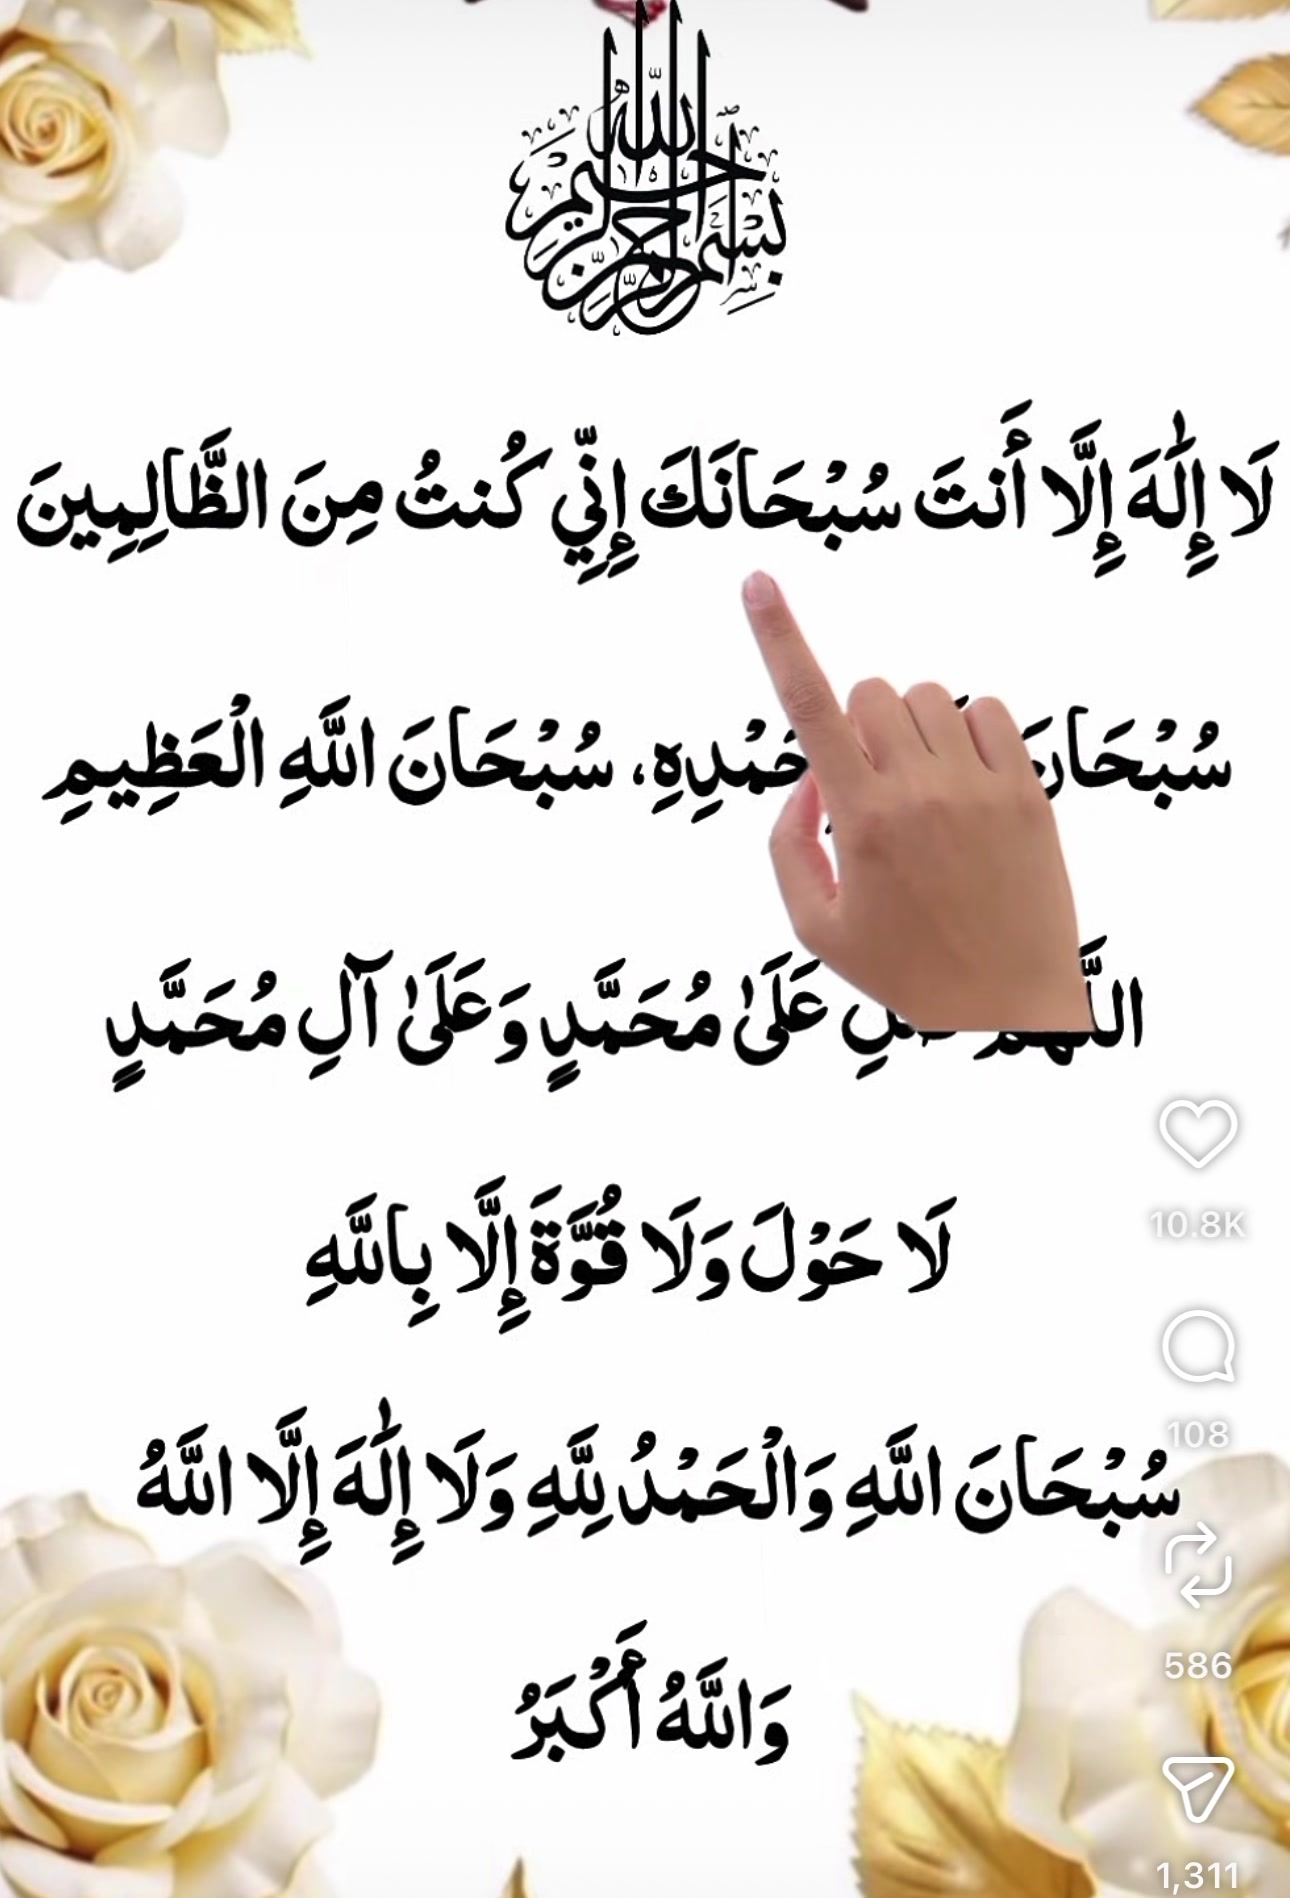 بِسْمِ اللَّهِ الرَّحْمَٰنِ الرَّحِيمِ
لَا إِلَٰهَ إِلَّا أَنتَ سُبْحَانَكَ إِنِّي كُنتُ مِنَ الظَّالِمِينَ
سُبْحَانَ حَمْدِهِ، سُبْحَانَ اللَّهِ الْعَظِيمِ
اللَّهُمَّ صَلِّ عَلَىٰ مُحَمَّدٍ وَعَلَىٰ آلِ مُحَمَّدٍ
لَا حَوْلَ وَلَا قُوَّةَ إِلَّا بِاللَّهِ
سُبْحَانَ اللَّهِ وَالْحَمْدُ لِلَّهِ وَلَا إِلَٰهَ إِلَّا اللَّهُ
وَاللَّهُ أَكْبَرُ
10.8K
108
586
1,311